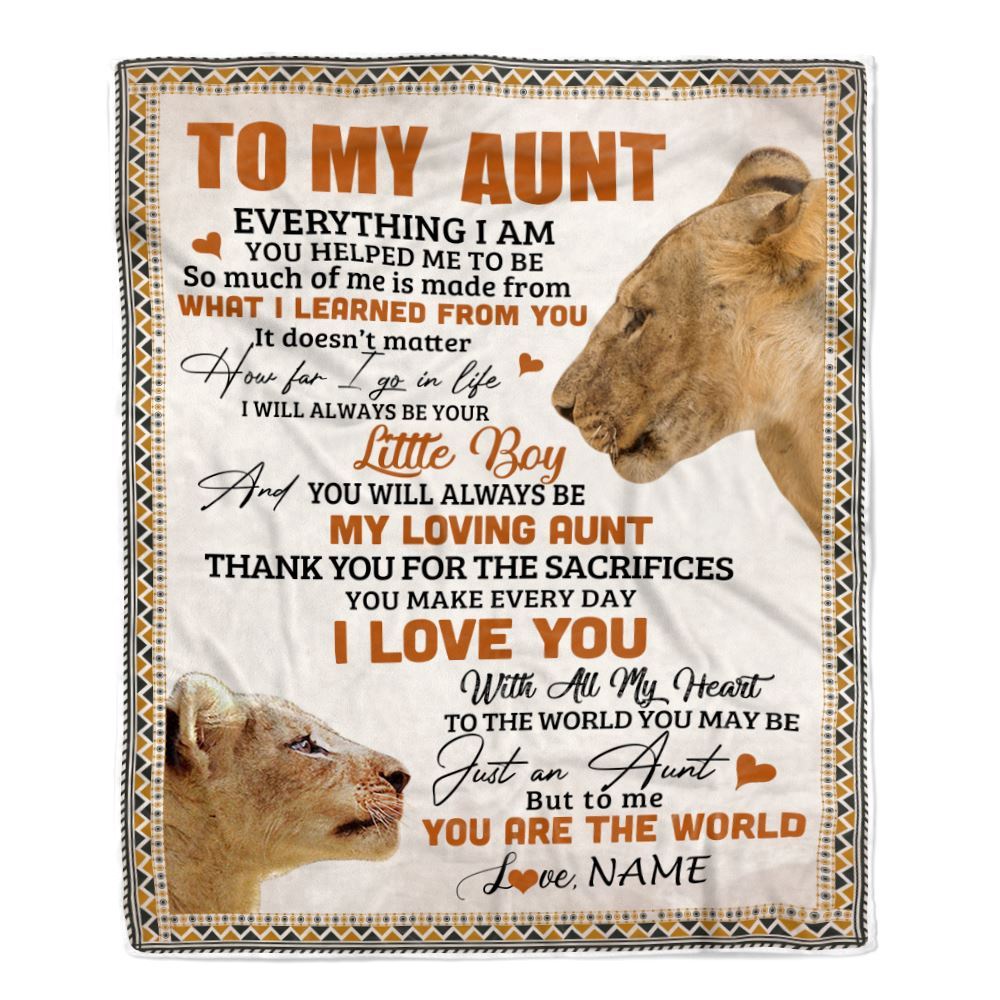 TO MY AUNT
EVERYTHING I AM
YOU HELPED ME TO BE
So much of me is made from
WHAT I LEARNED FROM YOU
It doesn't matter
How far I go in life
I WILL ALWAYS BE YOUR
Little Boy
And YOU WILL ALWAYS BE
MY LOVING AUNT
THANK YOU FOR THE SACRIFICES
YOU MAKE EVERY DAY
I LOVE YOU
With All My Heart
TO THE WORLD YOU MAY BE
Just an Aunt
But to me
YOU ARE THE WORLD
Love, NAME